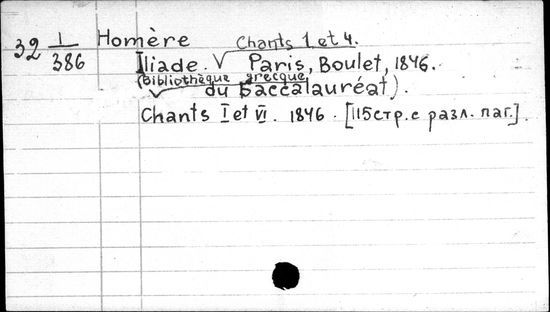 32 1/386 Homère
Chants 1 et 4.
Iliade. √ Paris, Boulet, 1846.
(Bibliothèque grecque
du baccalauréat).
Chants I et VI. 1846. [115стр. с разл. паг.].